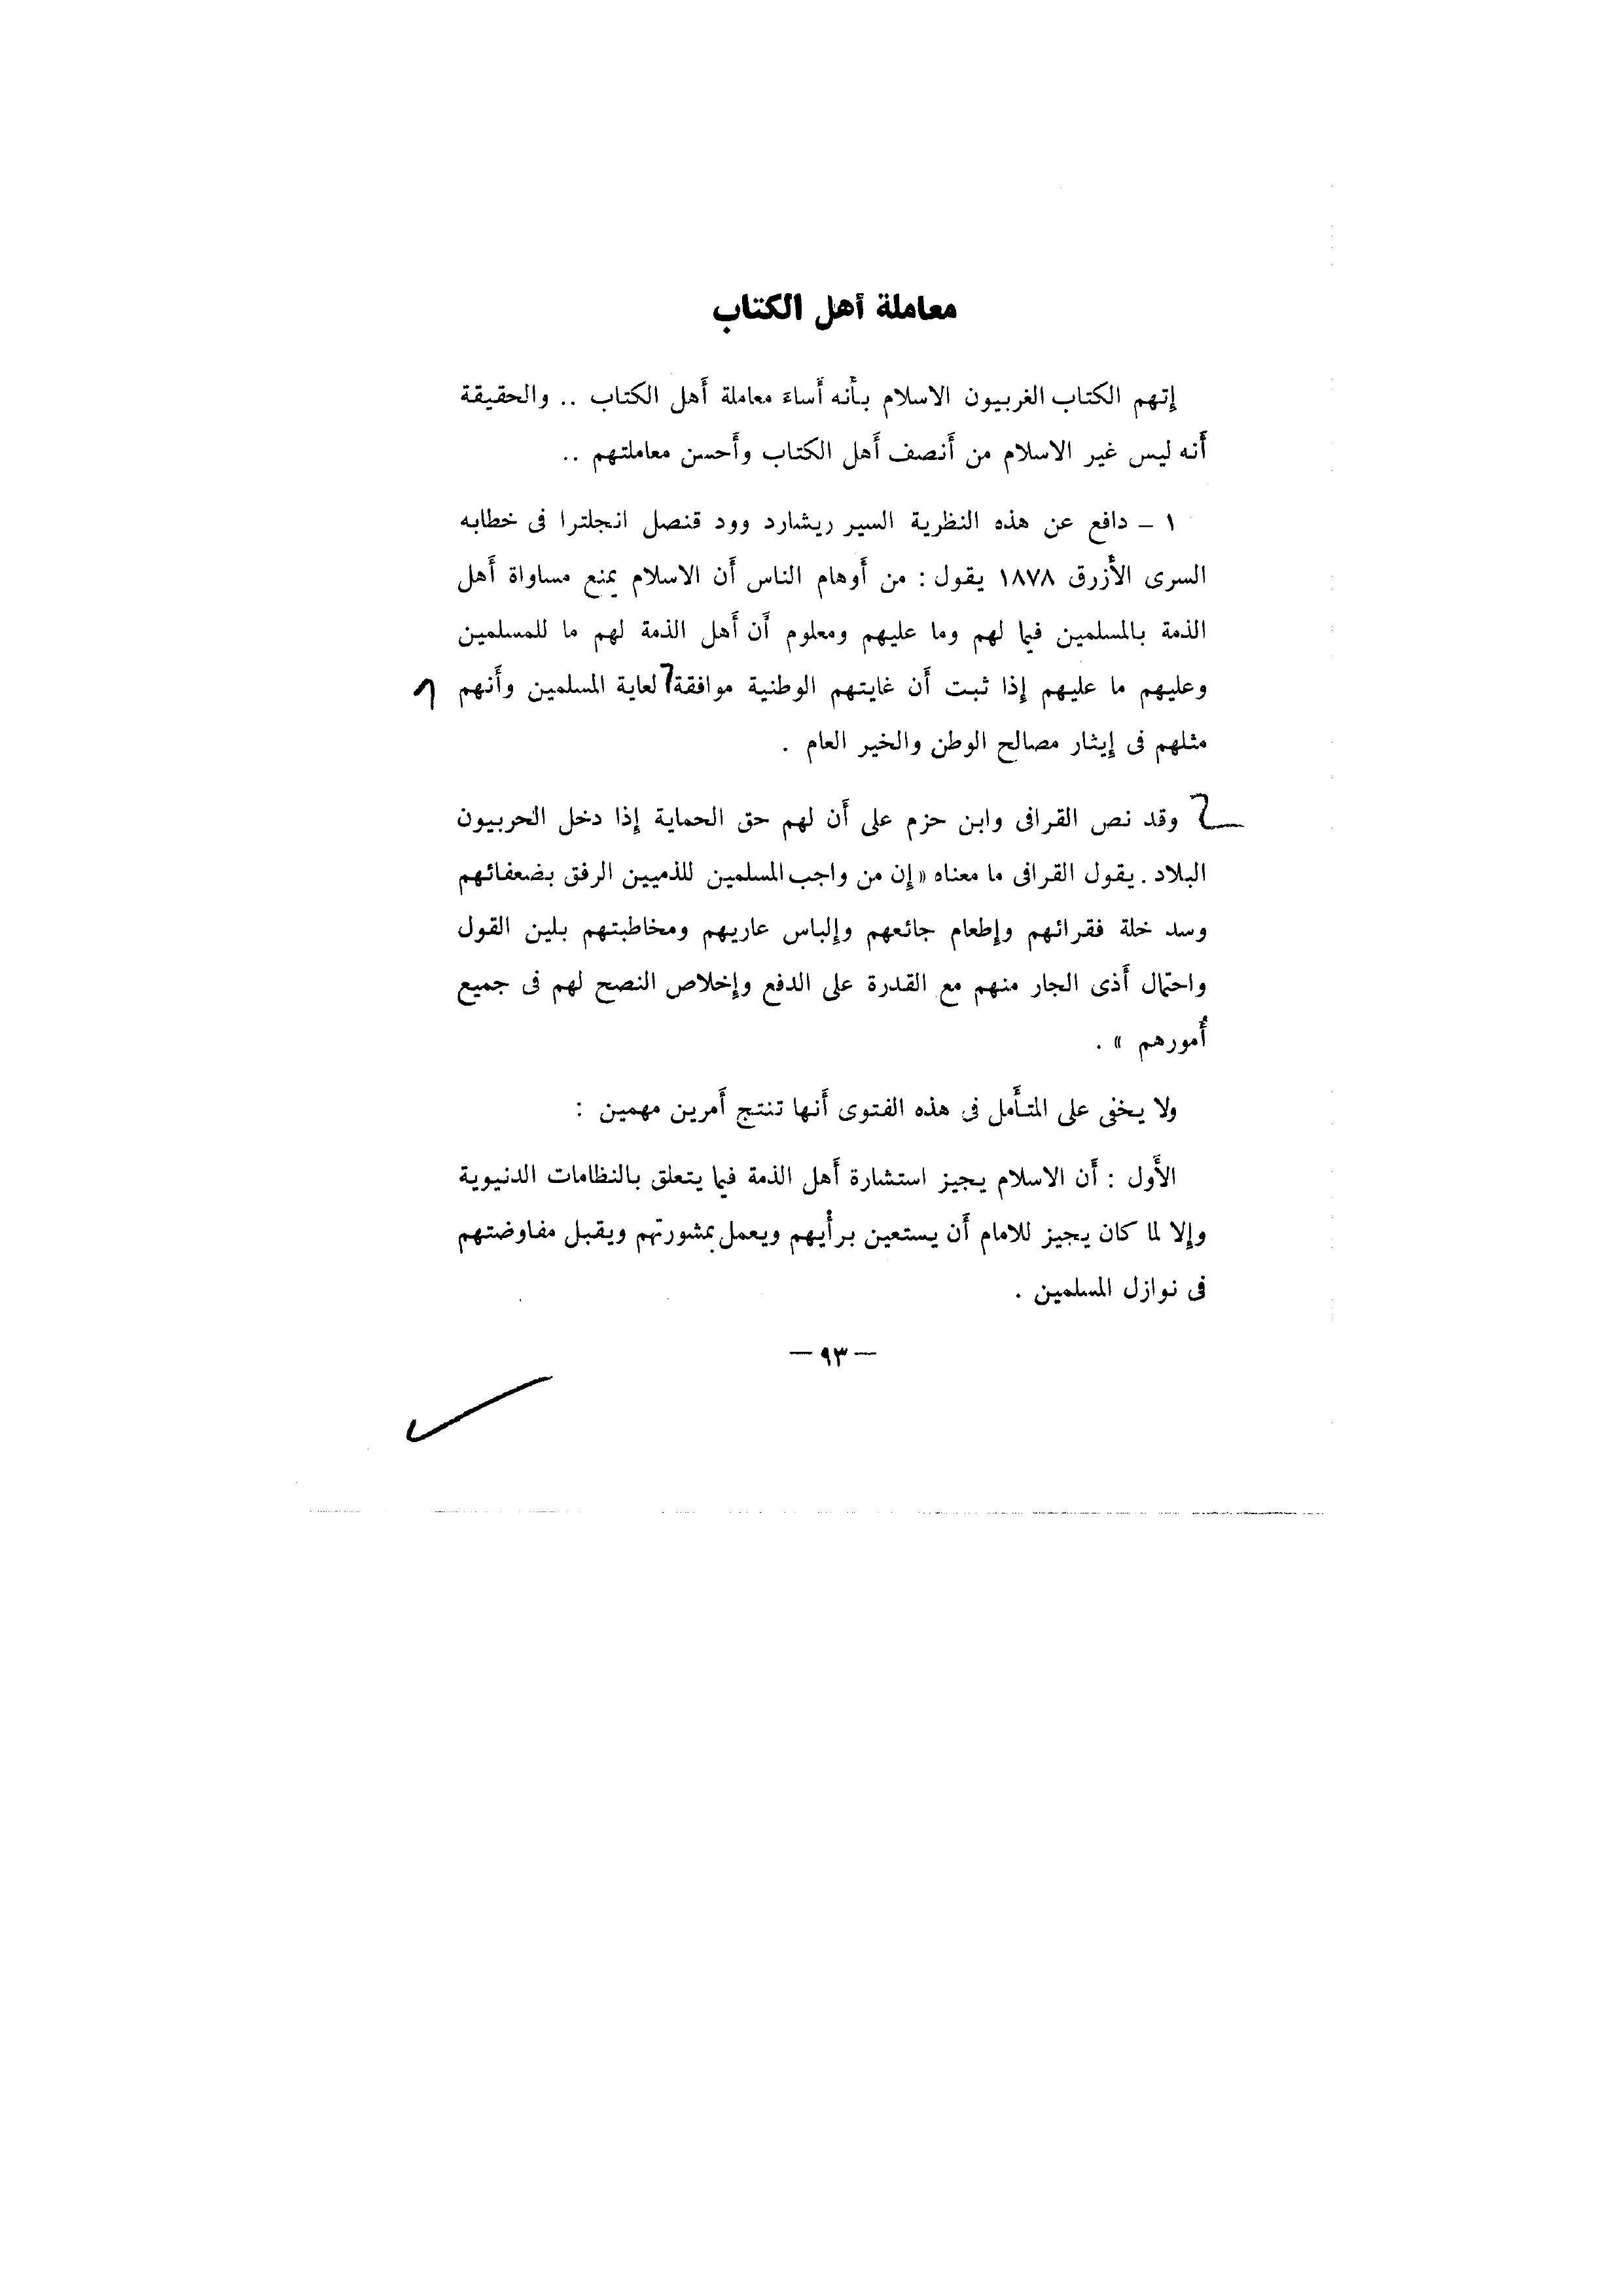 معاملة أهل الكتاب
إتهم الكتاب الغربيون الاسلام بأنه أساء معاملة أهل الكتاب .. والحقيقة
أنه ليس غير الاسلام من أنصف أهل الكتاب وأحسن معاملتهم ..
١ – دافع عن هذه النظرية السير ريشارد وود قنصل انجلترا فى خطابه
السرى الأزرق ١٨٧٨ يقول : من أوهام الناس أن الاسلام يمنع مساواة أهل
الذمة بالمسلمين فيما لهم وما عليهم ومعلوم أن أهل الذمة لهم ما للمسلمين
وعليهم ما عليهم إذا ثبت أن غايتهم الوطنية موافقة لعاية المسلمين وأنهم
مثلهم فى إيثار مصالح الوطن والخير العام .
وقد نص القرافى وابن حزم على أن لهم حق الحماية إذا دخل الحربيون
البلاد . يقول القرافى ما معناه « إن من واجب المسلمين للذميين الرفق بضعفائهم
وسد خلة فقرائهم وإطعام جائعهم وإلباس عاريهم ومخاطبتهم بلين القول
واحتمال أذى الجار منهم مع القدرة على الدفع وإخلاص النصح لهم فى جميع
أمورهم » .
ولا يخفى على المتأمل فى هذه الفتوى أنها تنتج أمرين مهمين :
الأول : أن الاسلام يجيز استشارة أهل الذمة فيما يتعلق بالنظامات الدنيوية
وإلا لما كان يجيز للامام أن يستعين برأيهم ويعمل بمشورتهم ويقبل مفاوضتهم
فى نوازل المسلمين .
— ٩٣ —